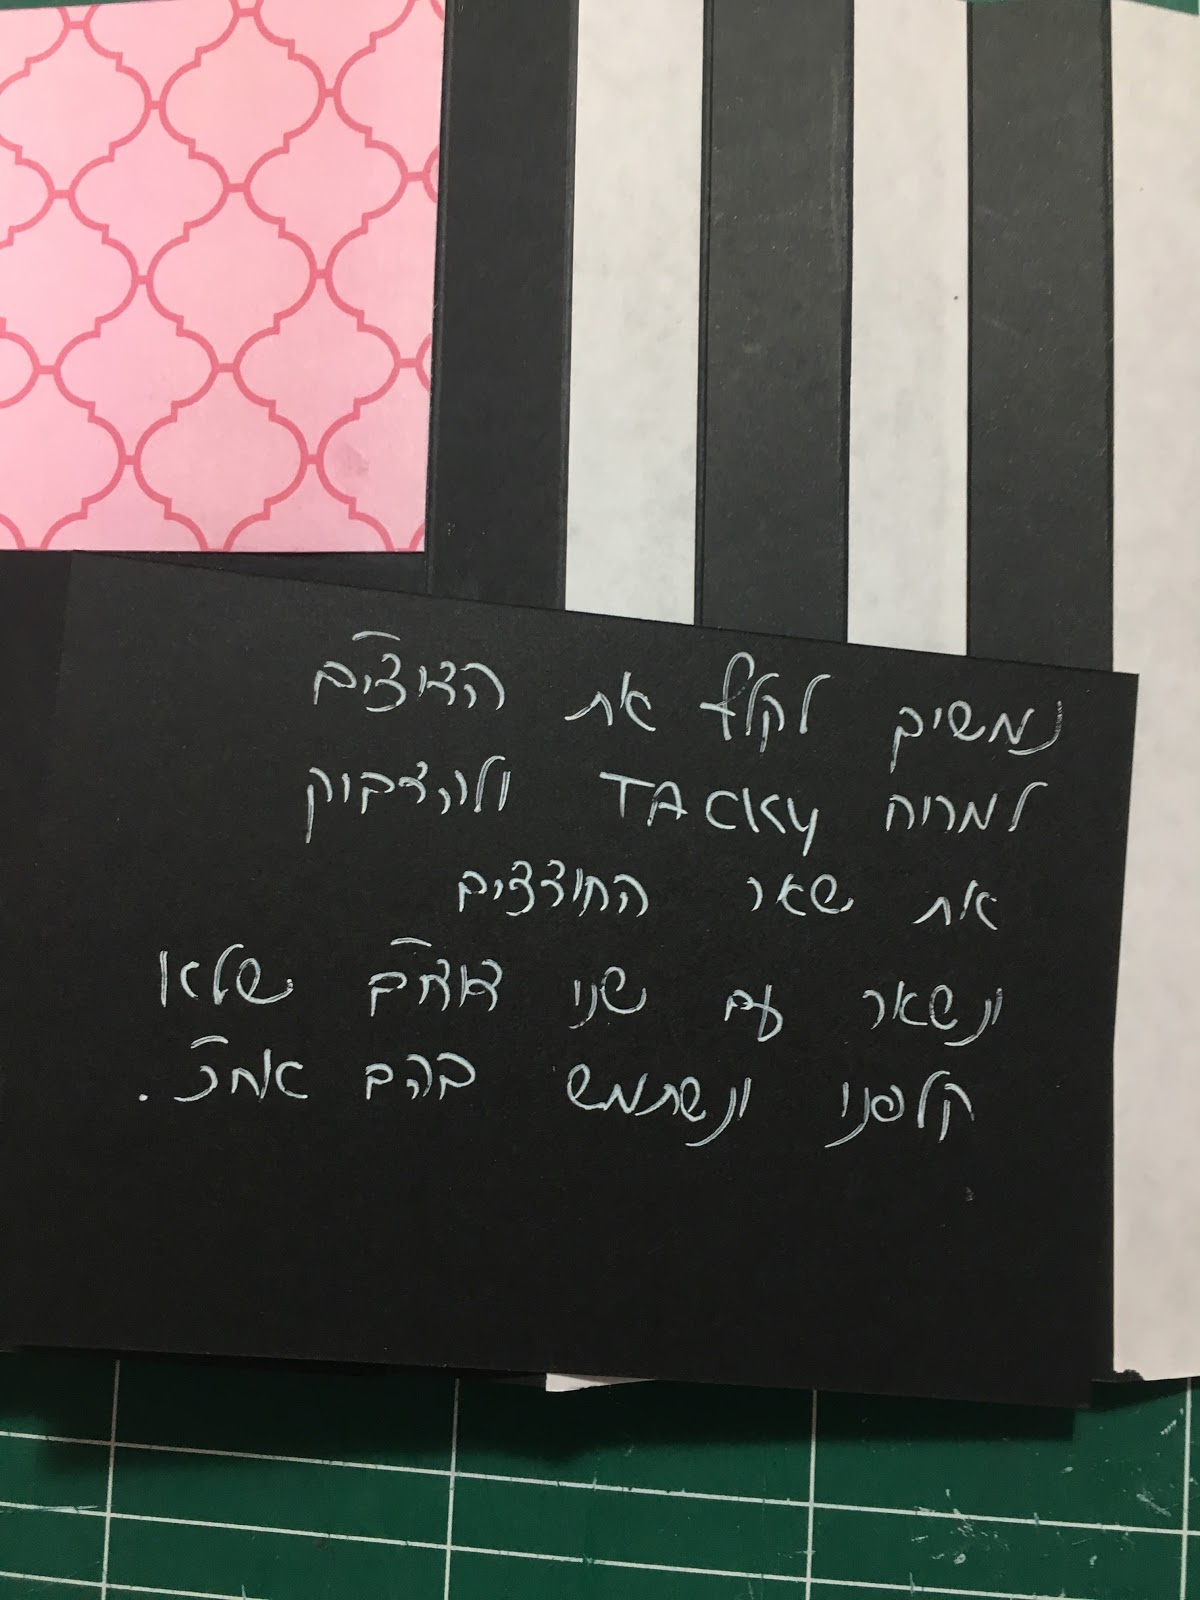 נמשיך לקלף את הדוצים
למרוח TACKY ולהדביק
את שאר החוצצים
ונשאר עם שני דוצים שלא
קלפנו ונשתמש בהם אחכ.